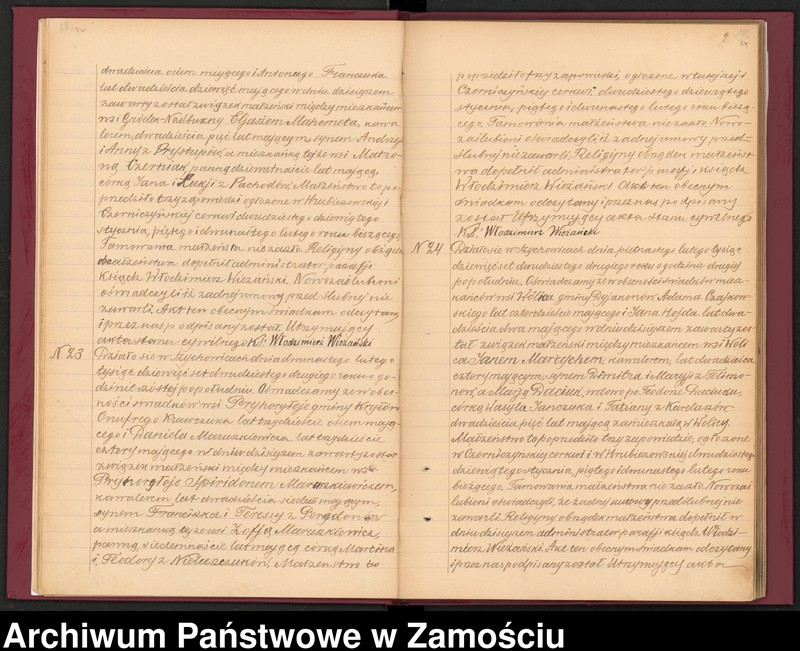 dwadzieścia osiem mającego i Antoniego Franczuka
lat dwadzieścia dziewięć mającego w dniu dzisiejszem
zawarty został związek małżeński między mieszkańcem
wsi Gródka-Nadbużny Eljaszem Mahometa, kawa
lerem, dwadzieścia pięć lat mającym, synem Andrzeja
i Anny z Prystupów, a mieszkanką tejże wsi Matro
ną Czerniak, panną dziewiętnaście lat mającą,
córką Jana i Łukji z Pachodów. Małżeństwo to po
przedziło trzy zapowiedzi ogłoszone w Hrubieszowskiej i
Czerniczyńskiej cerkwi dwudziestego dziewiątego
stycznia, piątego i dwunastego lutego roku bieżącego
Tamowania małżeństwa nie zaszło. Religijny obrządek
małżeństwa dopełnił administrator parafji
Ksiądz Włodzimierz Wieżański. Nowozaślubieni
oświadczyli iż żadnej umowy przedślubnej nie
zawarli. Akt ten obecnym świadkom odczytany
i przez nas podpisany został. Utrzymujący
akta stanu cywilnego Ks. Włodzimierz Wieżański
N 23 Działo się w Szychowicach dnia dwunastego lutego
tysiąc dziewięćset dwudziestego drugiego roku o go
dzinie szóstej po południu. Oświadczamy że w obec
ności świadków wsi Prychoryłoje gminy Kryłów
Onufrego Krawczuka lat trzydzieście osiem mają
cego i Daniela Maruszkiewicza lat trzydzieście
cztery mającego w dniu dzisiejszem zawarty został
związek małżeński między mieszkańcem wsi
Prychoryłoje Spirydonem Maruszkiewiczem,
kawalerem lat dwadzieścia siedem mającym,
synem Franciszka i Teressy z
a mieszkanką tejże wsi Zofją Maruszkiewicz,
panną, siedemnaście lat mającą córką Marcina
i Teodory z Nieleszczuków. Małżeństwo to
poprzedziło trzy zapowiedzi, ogłoszone w tutejszej i
Czerniczyńskiej cerkwi: dwudziestego dziewiątego
stycznia, piątego i dwunastego lutego roku bieżą
cego. Tamowania małżeństwa nie zaszło. Nowo
zaślubieni oświadczyli iż żadnej umowy przed
ślubnej nie zawarli. Religijny obrządek małżeńst
wa dopełnił administrator parafji Ksiądz
Włodzimierz Wieżański. Akt ten obecnym
świadkom odczytany i przez nas podpisany
został. Utrzymujący akta stanu cywilnego
Ks. Włodzimierz Wieżański
N 24 Działo się w Szychowicach dnia piętnastego lutego tysiąc
dziewięćset dwudziestego drugiego roku o godzinie drugiej
po południu. Oświadczamy że w obecności świadków miesz
kańców wsi Wólka gminy Adama Czajkow
skiego lat czterdzieście mającego i Jana Hojda lat dwa
dzieścia dwa mającego w dniu dzisiejszem zawarty zos
tał związek małżeński między mieszkańcem wsi Woli
ca Janem Martychem, kawalerem, lat dwadzieścia
cztery mającym, synem Dimitra i Maryji z Filimo
nów, a Marją Daciuk, wdową po Teodorze Daciuku,
córką Wasyla Janczuka i Tatiany z Karolaszów
dwadzieścia pięć lat mającą zamieszkałą w Wolicy.
Małżeństwo to poprzedziło trzy zapowiedzie, ogłoszone
w Czerniczyńskiej cerkwi i w Hrubieszowskiej dwudziestego
dziewiątego stycznia, piątego i dwunastego lutego roku
bieżącego. Tamowania małżeństwa nie zaszło. Nowozaś
lubieni oświadczyli, że żadnej umowy przedślubnej nie
zawarli. Religijny obrządek małżeństwa dopełnił w
dniu dzisiejszem administrator parafji ksiądz Włodzi
mierz Wieżański. Akt ten obecnym świadkom odczytany
i przez nas podpisany został. Utrzymujący akta
Archiwum Państwowe w Zamościu